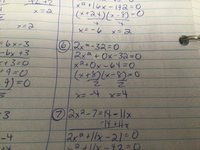 x=2
x²+16x-192=0
(x+24)(x-8)=0
x=-6 x=2
-6x-3
-6x+3
+3=0
+9)=0
=-3
⑥ 2x²-32=0
2x²+0x-32=0
x²+0x-64=0
(x+8)(x-8)=0
x=-4 x=4
⑦ 2x²-7=14-11x
-14+11x
2x²+11x-21=0
x²+11x-42=0
-3
-4